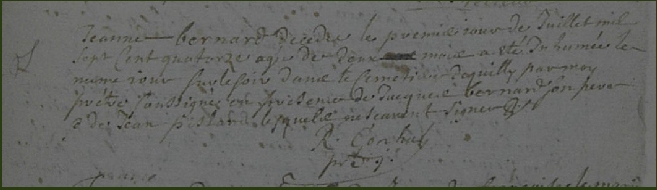 Jeanne bernard decedée le premier jour de Juillet mil
sept cent quatorze agée de deux mois a eté Inhumée le
mesme jour sur le soir dans le cimetiere par moy
prêtre soussigné en presence de Jacques bernard son pere
& de Jean lesquels ne scavent signer
R.
ptre